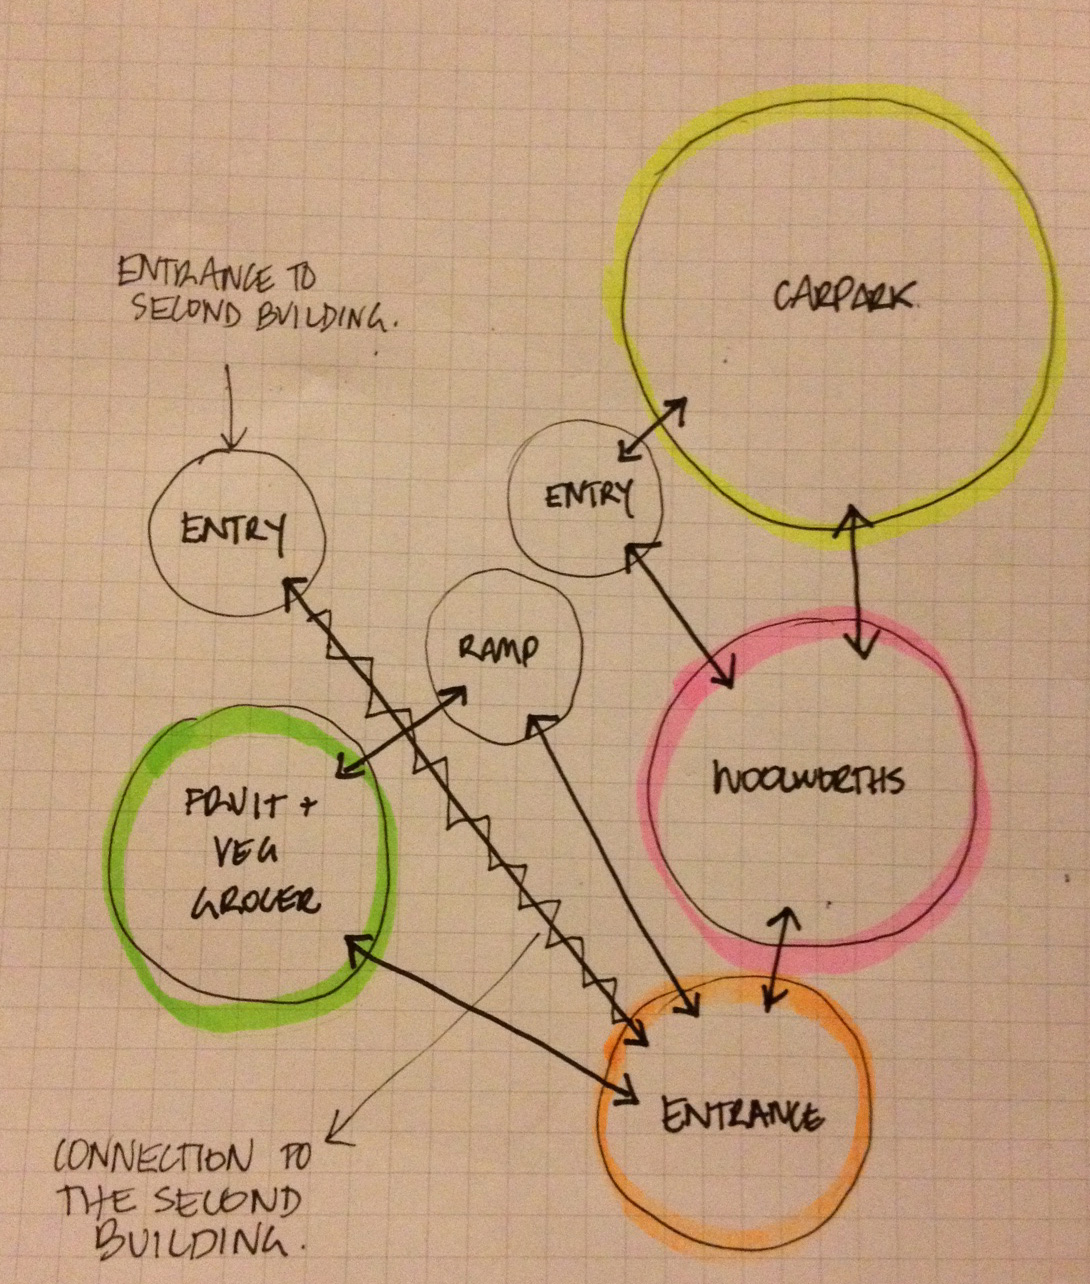 CARPARK
ENTRANCE TO
SECOND BUILDING.
ENTRY
ENTRY
RAMP
WOOLWORTHS
FRUIT +
VEG
GROCER
ENTRANCE
CONNECTION TO
THE SECOND
BUILDING.